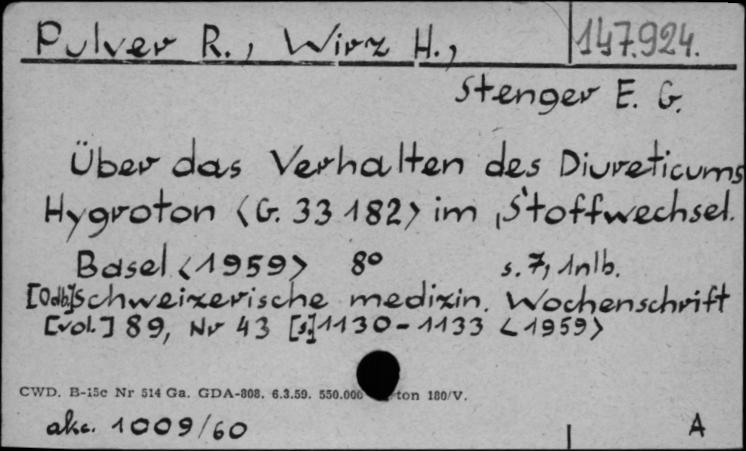 Pulver R., Wirz H., 147.924.
Stenger E. G.
Über das Verhalten des Diureticums
Hygroton <G. 33 182> im Stoffwechsel.
Basel <1959> 8° s. 7, 1nlb.
[Odb.] Schweizerische medizin. Wochenschrift
[vol.] 89, Nr 43 [s.] 1130-1133 <1959>
CWD. B-15c Nr 514 Ga. GDA-808. 6.3.59. 550.000 ton 180/V.
akc. 1009/60 A